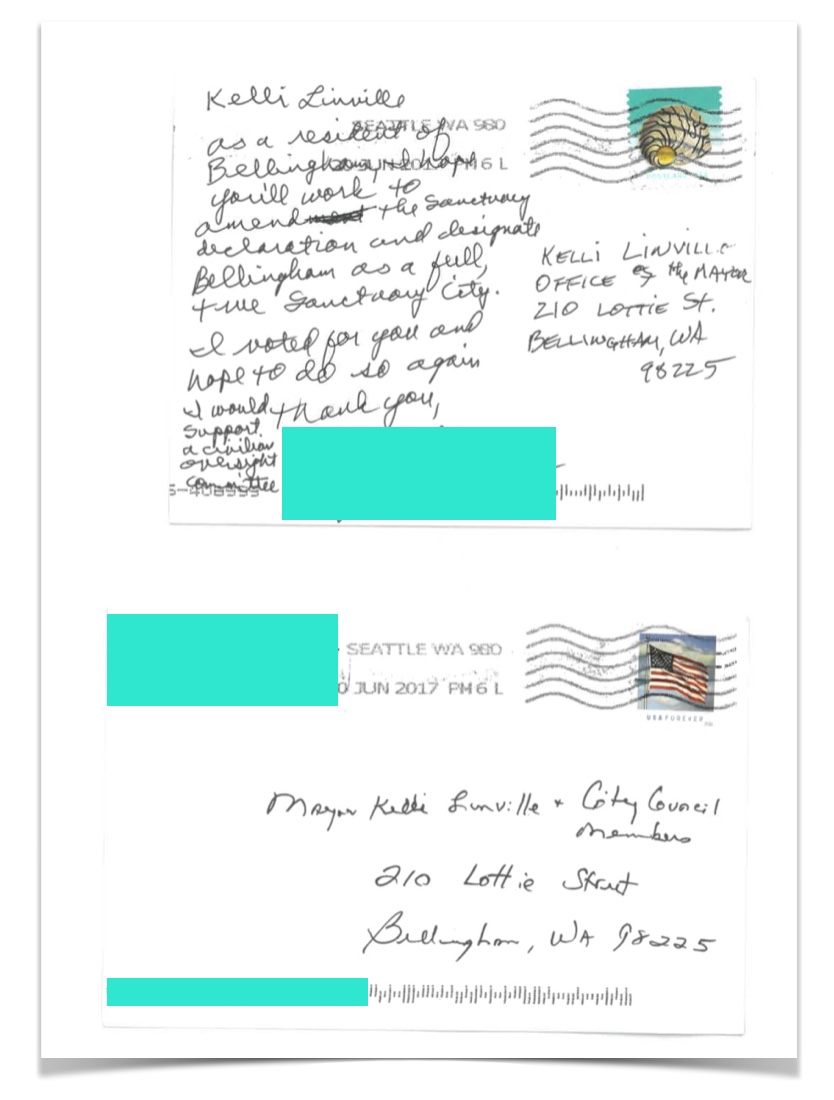 Kelli Linville
SEATTLE WA 980
as a resident of
Bellingham, I hope
20 JUN 2017 PM 6 L
you'll work to
amend the Sanctuary
declaration and designate
Bellingham as a full,
true Sanctuary City.
I voted for you and
hope to do so again
I would
support
a civilian
oversight
committee
thank you,
KELLI LINVILLE
OFFICE of the MAYOR
210 LOTTIE St.
BELLINGHAM, WA
98225
SEATTLE WA 980
0 JUN 2017 PM 6 L
USA FOREVER
Mayor Kelli Linville + City Council
Members
210 Lottie Street
Bellingham, WA 98225